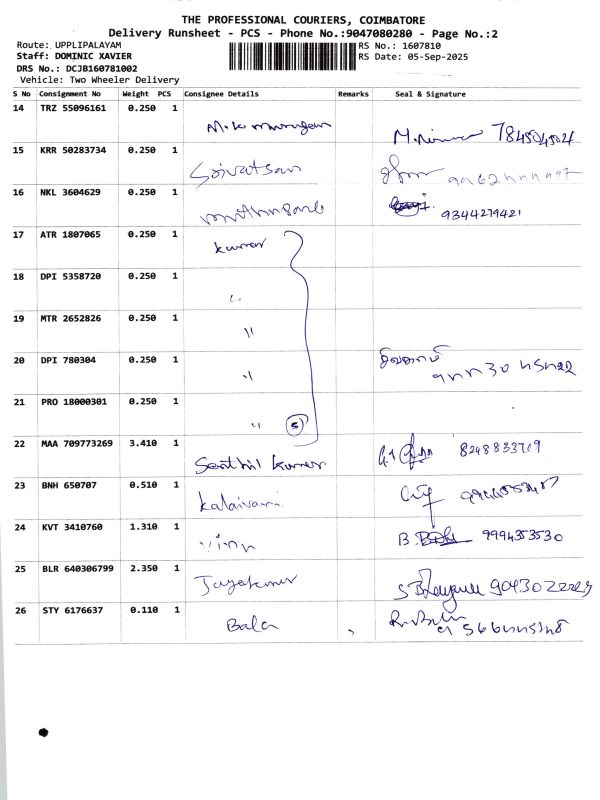 THE PROFESSIONAL COURIERS, COIMBATORE
Delivery Runsheet - PCS - Phone No.:9047080280 - Page No.:2
Route: UPPLIPALAYAM RS No.: 1607810
Staff: DOMINIC XAVIER RS Date: 05-Sep-2025
DRS No.: DCJB160781002
Vehicle: Two Wheeler Delivery
S No Consignment No Weight PCS Consignee Details Remarks Seal & Signature
14 TRZ 55096161 0.250 1 M.K murugan 7845045024
15 KRR 50283734 0.250 1 Srivatsan
16 NKL 3604629 0.250 1 9344279421
17 ATR 1807065 0.250 1 Kumar
18 DPI 5358720 0.250 1 "
19 MTR 2652826 0.250 1 "
20 DPI 780304 0.250 1 "
21 PRO 18000301 0.250 1 " 5
22 MAA 709773269 3.410 1 Senthil Kumar 8248833709
23 BNH 650707 0.510 1 Kalaivani
24 KVT 3410760 1.310 1 B. 9994353530
25 BLR 640306799 2.350 1 Jayakumar
26 STY 6176637 0.110 1 Bala